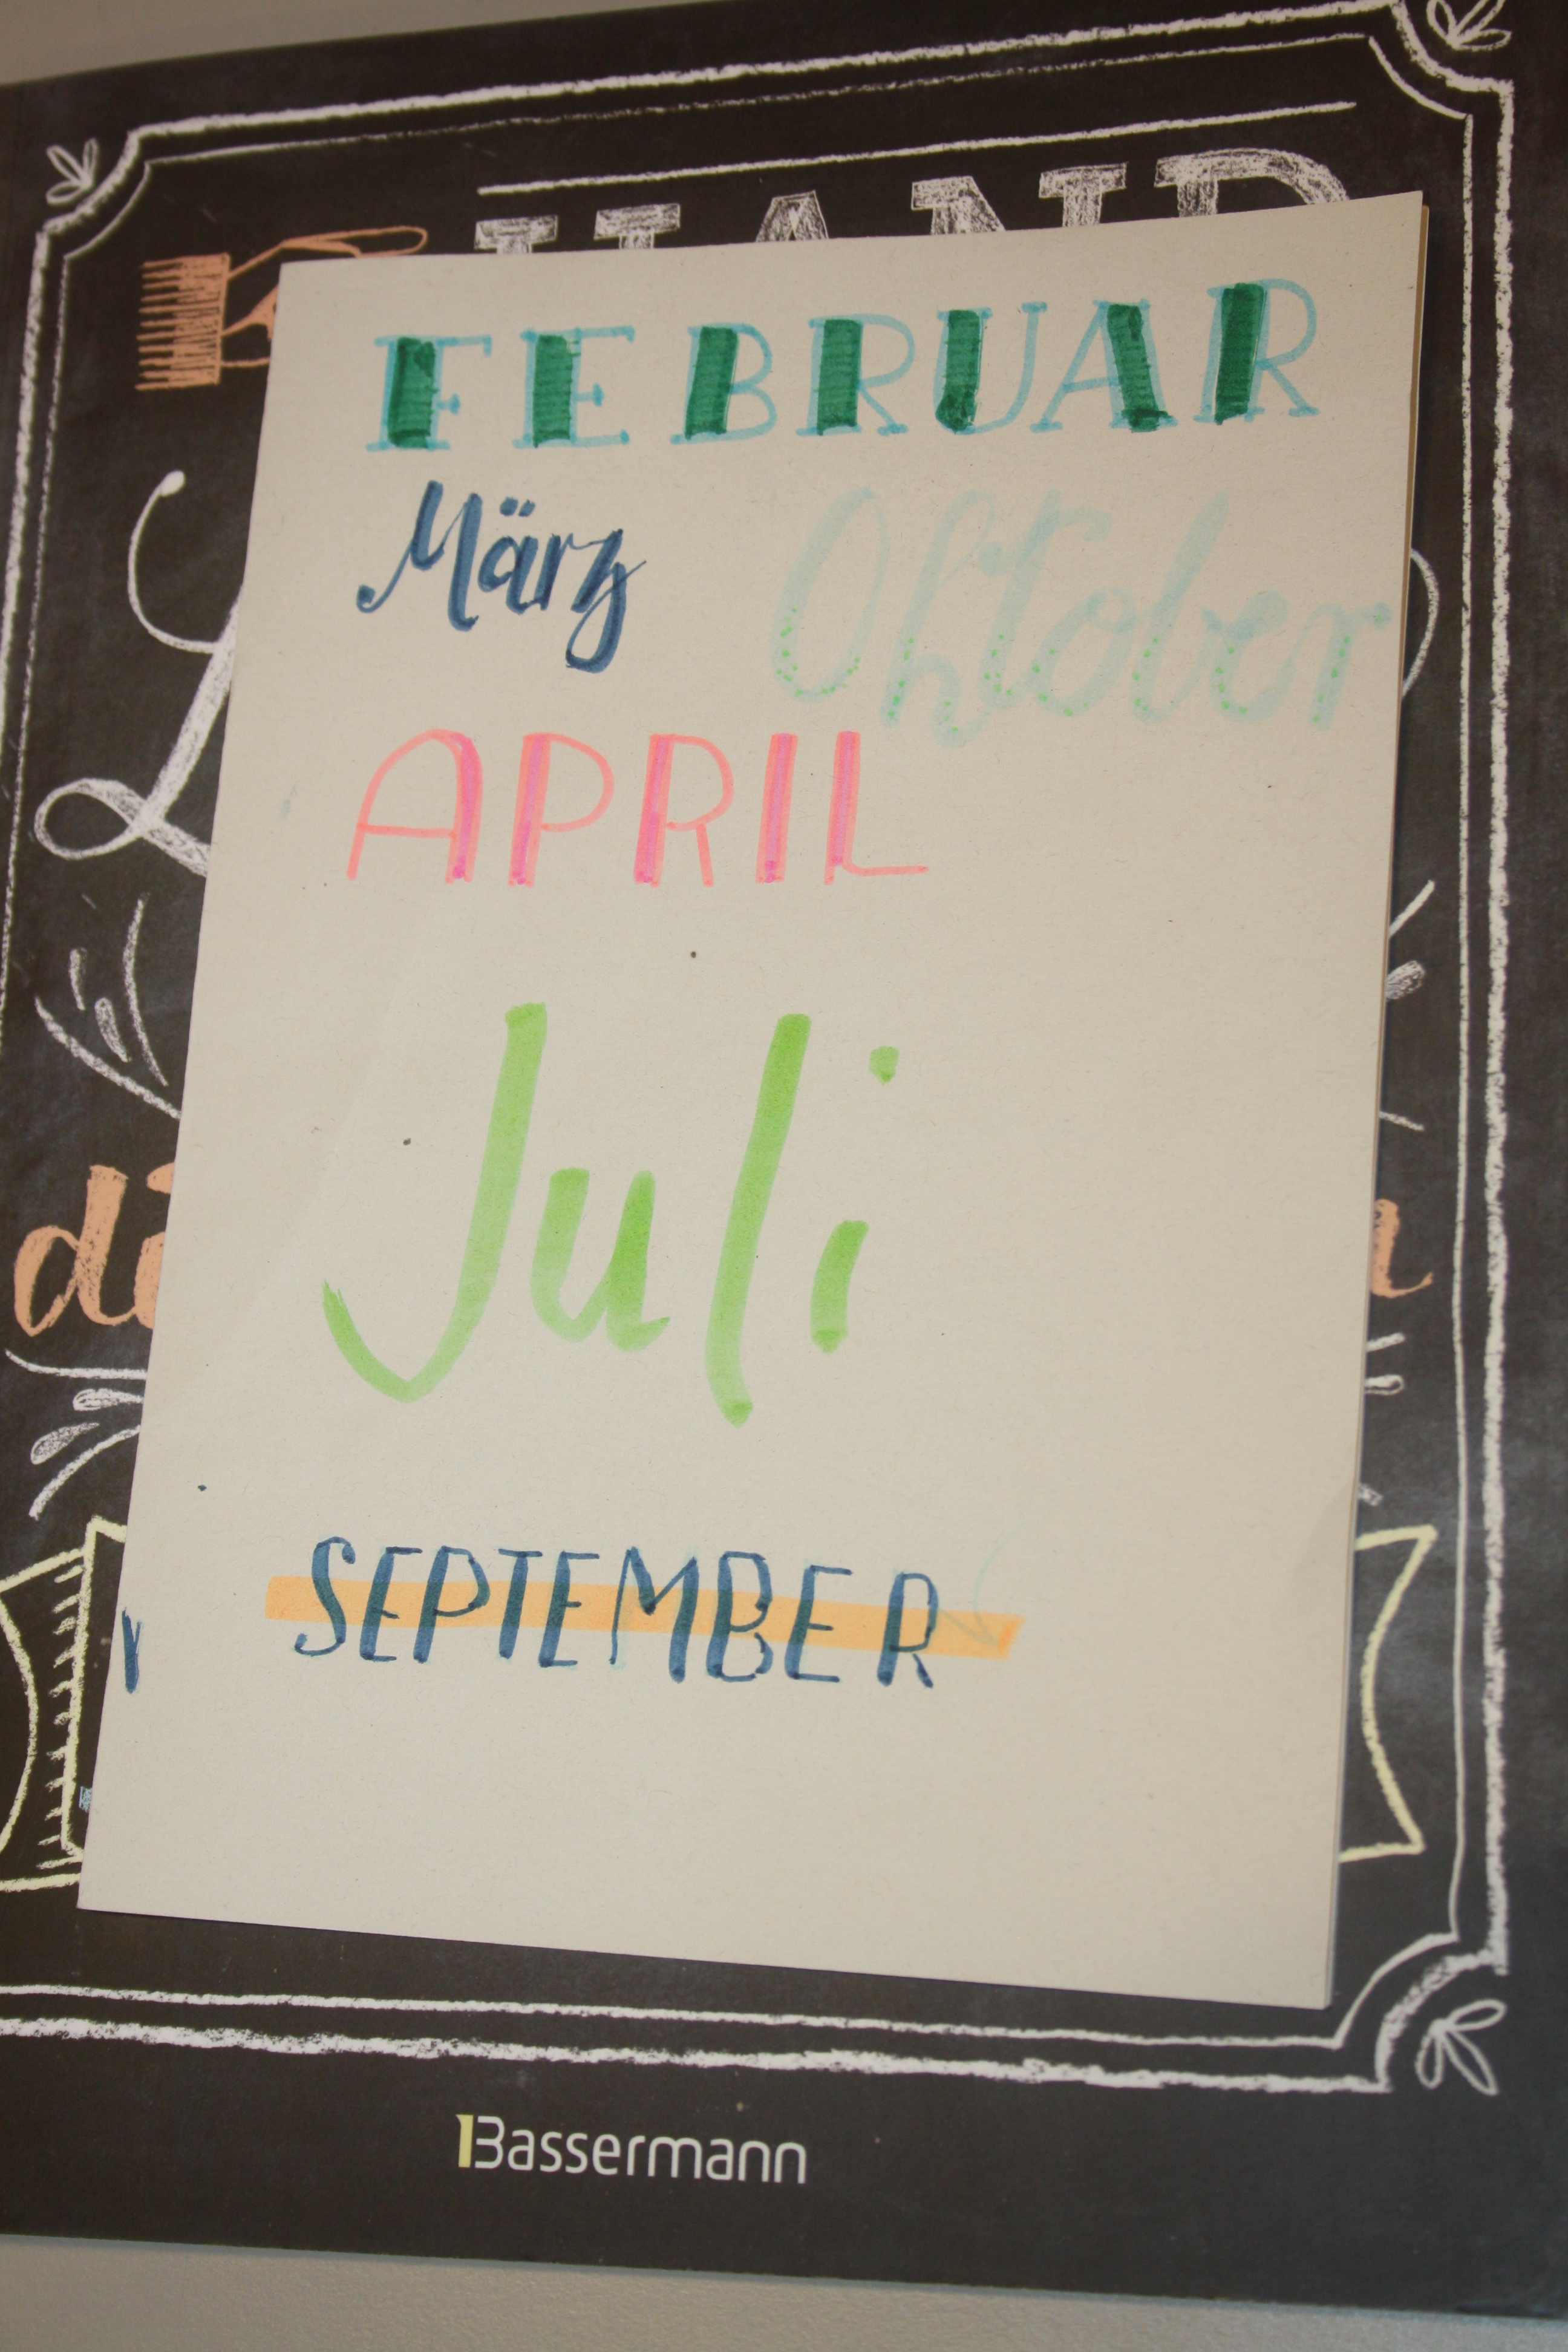 HAND
FEBRUAR
März
Oktober
APRIL
Juli
SEPTEMBER
Bassermann